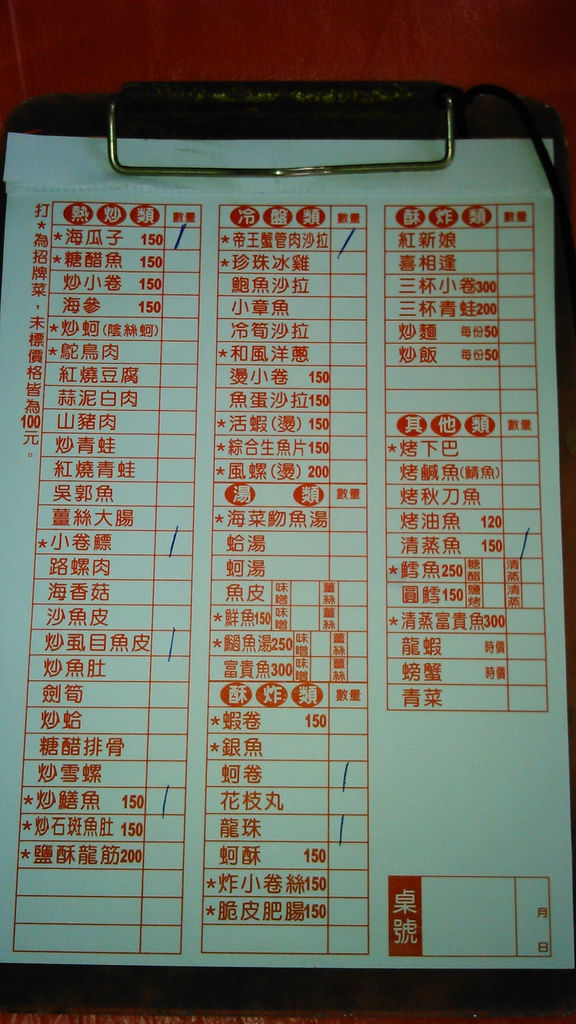 打*為招牌菜，未標價格皆為100元。
熱炒類 數量
*海瓜子 150
*糖醋魚 150
炒小卷 150
海參 150
*炒蚵(陰絲蚵)
*鴕鳥肉
紅燒豆腐
蒜泥白肉
山豬肉
炒青蛙
紅燒青蛙
吳郭魚
薑絲大腸
*小卷鰾
路螺肉
海香菇
沙魚皮
炒虱目魚皮
炒魚肚
劍筍
炒蛤
糖醋排骨
炒雪螺
*炒鱔魚 150
*炒石斑魚肚 150
*鹽酥龍筋200
冷盤類 數量
*帝王蟹管肉沙拉
*珍珠冰雞
鮑魚沙拉
小章魚
冷筍沙拉
*和風洋蔥
燙小卷 150
魚蛋沙拉150
*活蝦(燙) 150
*綜合生魚片150
*風螺(燙) 200
湯類 數量
*海菜魩魚湯
蛤湯
蚵湯
魚皮 味噌 薑絲
*鮮魚150 味噌 薑絲
*鰡魚湯250 味噌 薑絲
富貴魚300 味噌 薑絲
酥炸類 數量
*蝦卷 150
*銀魚
蚵卷
花枝丸
龍珠
蚵酥 150
*炸小卷絲150
*脆皮肥腸150
酥炸類 數量
紅新娘
喜相逢
三杯小卷300
三杯青蛙200
炒麵 每份50
炒飯 每份50
其他類 數量
*烤下巴
烤鹹魚(鯖魚)
烤秋刀魚
烤油魚 120
清蒸魚 150
*鱈魚250 糖醋 清蒸
圓鱈150 鹽烤 清蒸
*清蒸富貴魚300
龍蝦 時價
螃蟹 時價
青菜
桌號
月
日